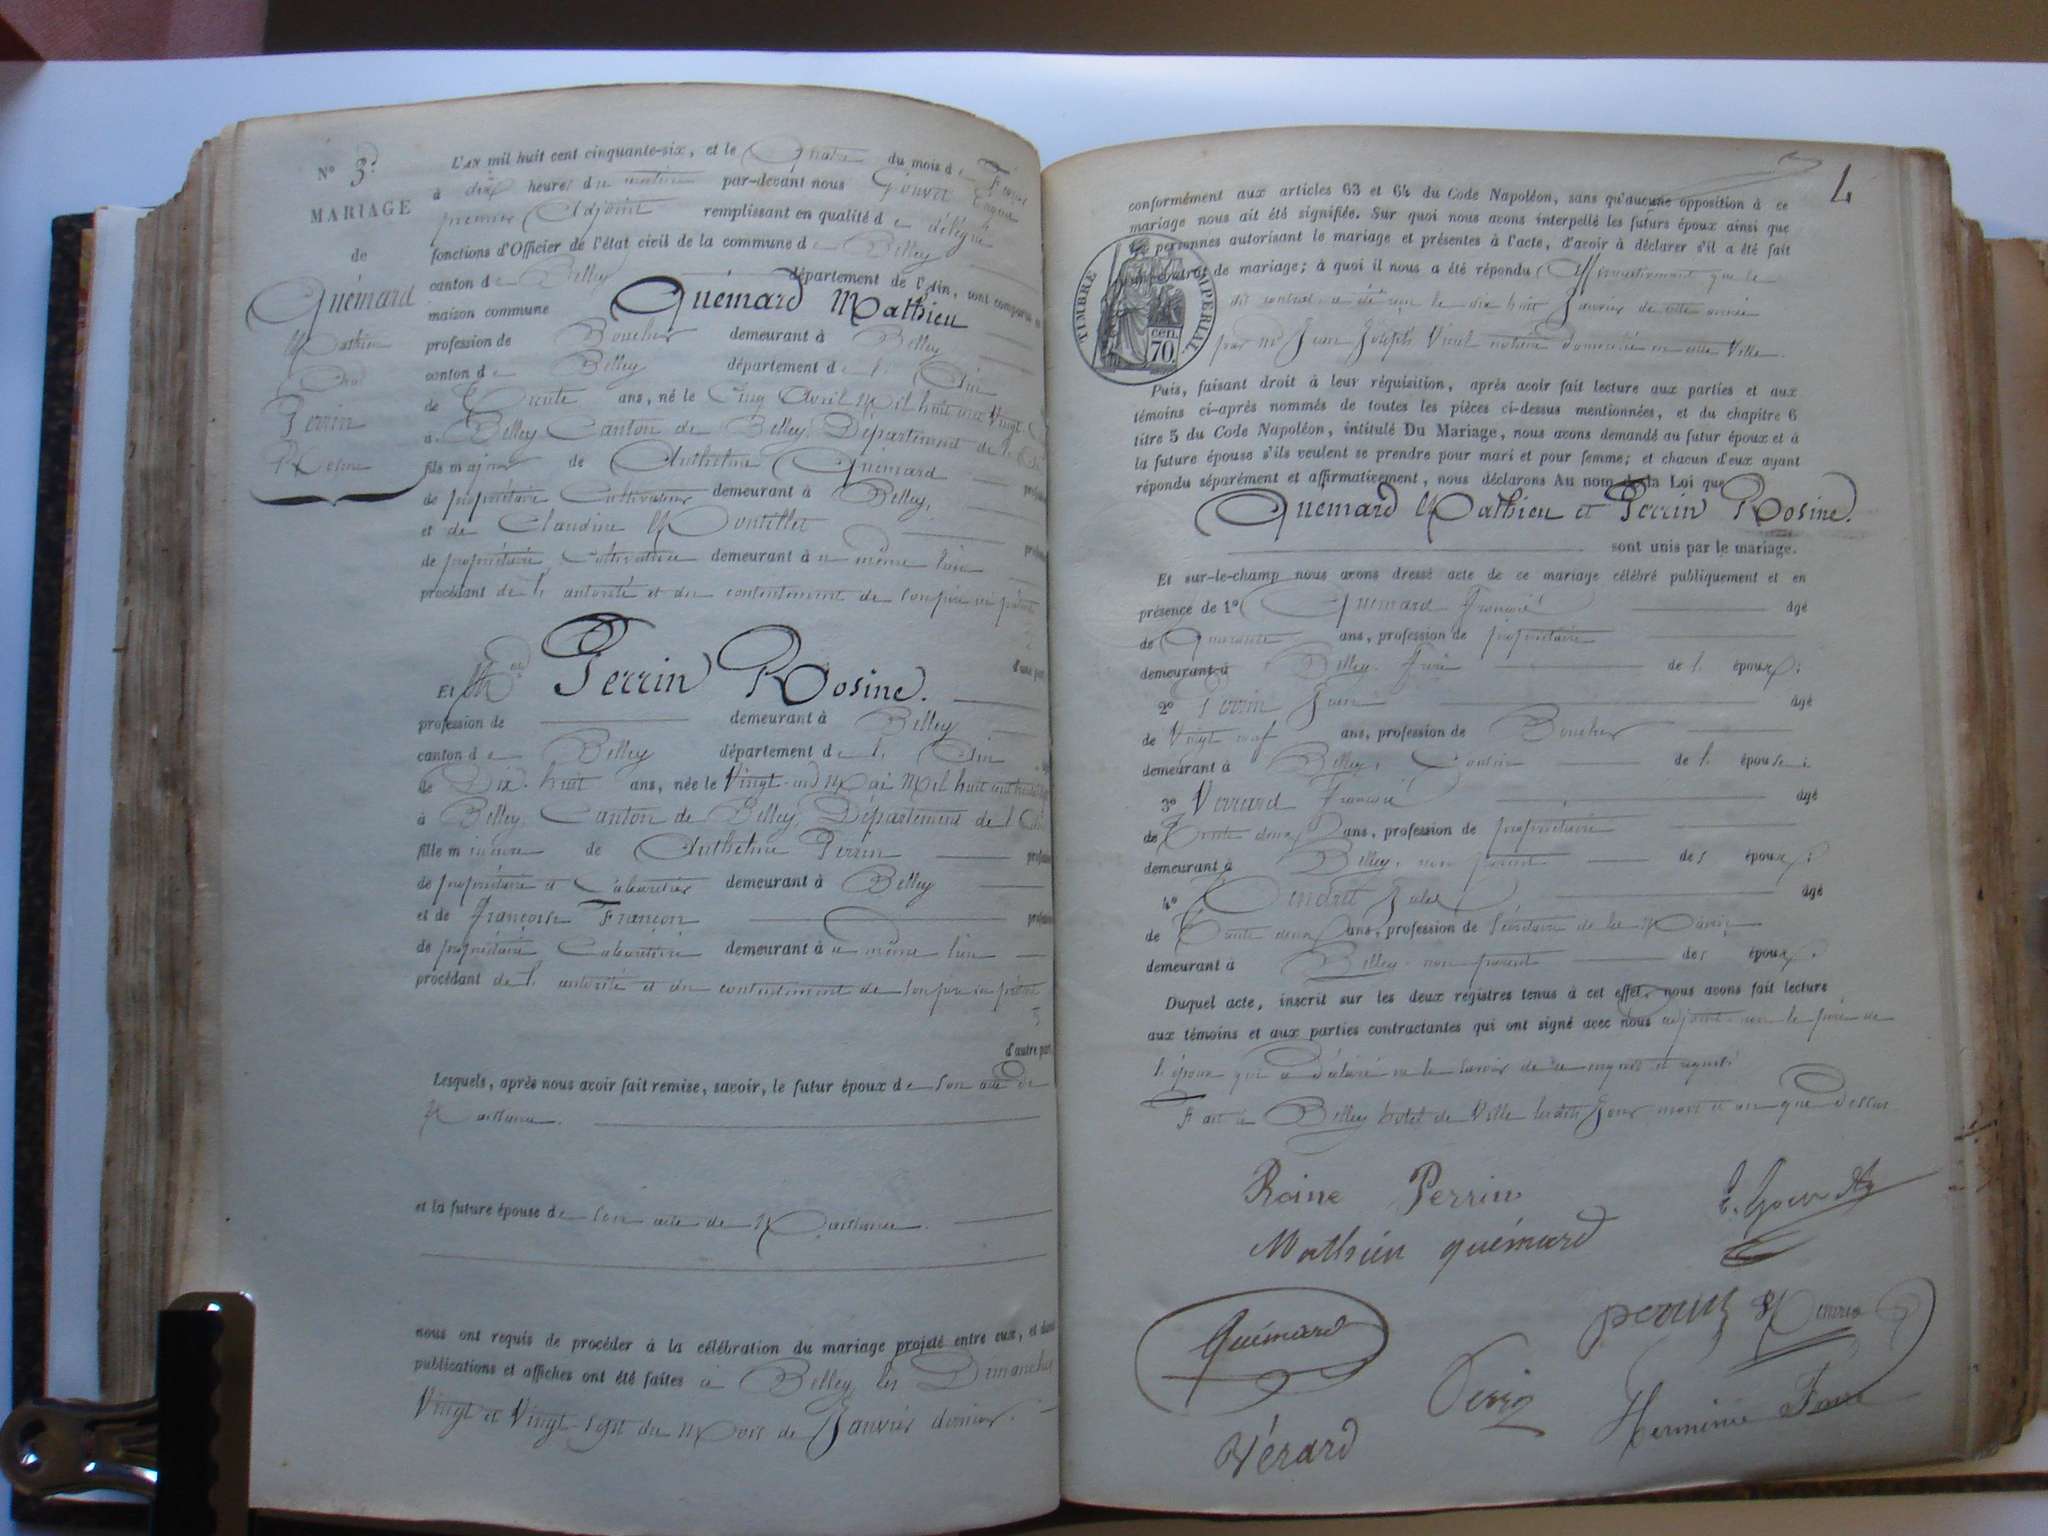 N° 3.
MARIAGE
de
Quémard
Mathieu
Et
Perrin
Rosine
L'AN mil huit cent cinquante-six, et le Quatre du mois de
à dix heures du matin par-devant nous
premier Adjoint remplissant en qualité de délégué
fonctions d'Officier de l'état civil de la commune de Belley
canton de Belley département de l'Ain, sont comparus en
maison commune Quémard Mathieu
profession de Boucher demeurant à Belley
canton de Belley département de l'Ain
de Trente ans, né le Cinq Avril Mil huit cent Vingt
à Belley Canton de Belley, Département de l'Ain
fils majeur de Anthelme Quémard
de propriétaire Cultivateur demeurant à Belley,
et de Claudine Montillet
de propriétaire Cultivatrice demeurant à ce même lieu
procédant de l'autorité et du consentement de son père ici présent
d'une part
Et Mlle Perrin Rosine.
profession de demeurant à Belley
canton de Belley département de l'Ain
de Dix-huit ans, née le Vingt-un Mai Mil huit cent
à Belley, Canton de Belley, Département de l'Ain
fille mineure de Anthelme Perrin
de propriétaire et Cabaretier demeurant à Belley
et de Françoise Françon
de propriétaire Cabaretière demeurant à ce même lieu
procédant de l'autorité et du consentement de son père ici présent
d'autre part
Lesquels, après nous avoir fait remise, savoir, le futur époux de son acte de
Naissance.
et la future épouse de son acte de Naissance.
nous ont requis de procéder à la célébration du mariage projeté entre eux, et dont
publications et affiches ont été faites à Belley les Dimanches
Vingt et Vingt-sept du Mois de Janvier dernier.
4
conformément aux articles 63 et 64 du Code Napoléon, sans qu'aucune opposition à ce
mariage nous ait été signifiée. Sur quoi nous avons interpellé les futurs époux ainsi que
les personnes autorisant le mariage et présentes à l'acte, d'avoir à déclarer s'il a été fait
un contrat de mariage; à quoi il nous a été répondu Affirmativement que le
dit contrat a été reçu le dix huit Janvier de cette année
par Me Jean Joseph notaire domicilié en cette Ville.
TIMBRE IMPERIAL.
cen.
70.
Puis, faisant droit à leur réquisition, après avoir fait lecture aux parties et aux
témoins ci-après nommés de toutes les pièces ci-dessus mentionnées, et du chapitre 6
titre 5 du Code Napoléon, intitulé Du Mariage, nous avons demandé au futur époux et à
la future épouse s'ils veulent se prendre pour mari et pour femme; et chacun d'eux ayant
répondu séparément et affirmativement, nous déclarons Au nom de la Loi que
Quémard Mathieu et Perrin Rosine.
sont unis par le mariage.
Et sur-le-champ nous avons dressé acte de ce mariage célébré publiquement et en
présence de 1° Quemard François âgé
de Quarante ans, profession de propriétaire
demeurant à Belley. frère de l'époux;
2° Perrin âgé
de Vingt neuf ans, profession de Boucher
demeurant à Belley, Cousin de l'épouse;
3° François âgé
de Trente deux ans, profession de propriétaire
demeurant à Belley, non parent des époux;
4° Jules âgé
de Trente deux ans, profession de Secrétaire de la Mairie
demeurant à Belley. non parent des époux.
Duquel acte, inscrit sur les deux registres tenus à cet effet, nous avons fait lecture
aux témoins et aux parties contractantes qui ont signé avec nous adjoint, non le père de
l'époux qui a déclaré ne le savoir de ce enquis et requis.
Fait à Belley hotel de Ville lesdits Jour mois et an que dessus
Rosine Perrin
Mathieu quémard
Quémard
Perrin
Vérard
Herminie